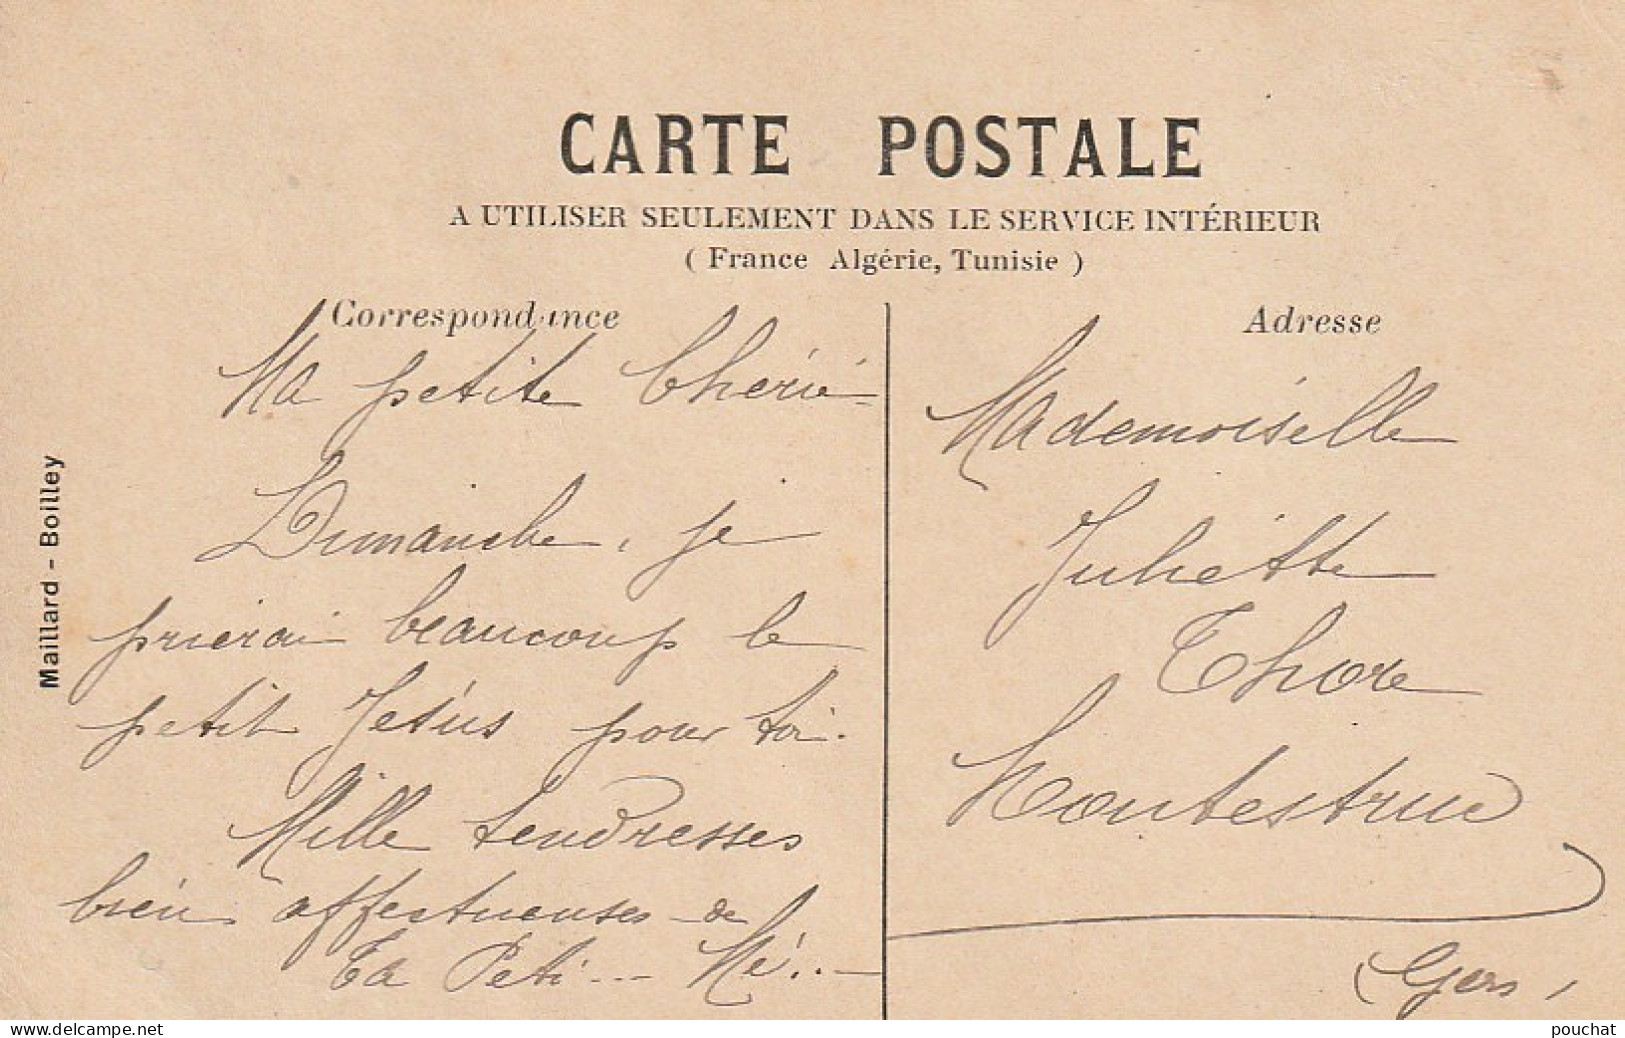 CARTE POSTALE
A UTILISER SEULEMENT DANS LE SERVICE INTÉRIEUR
( France Algérie, Tunisie )
Correspondance
Ma petite Chérie
Dimanche, je
prierai beaucoup le
petit Jésus pour toi.
Mille tendresses
bien affectueuses de
ta Peti... Mé...
Adresse
Mademoiselle
Juliette
Thore
Montestruc
(Gers)
Maillard - Boilley
www.delcampe.net
pouchat